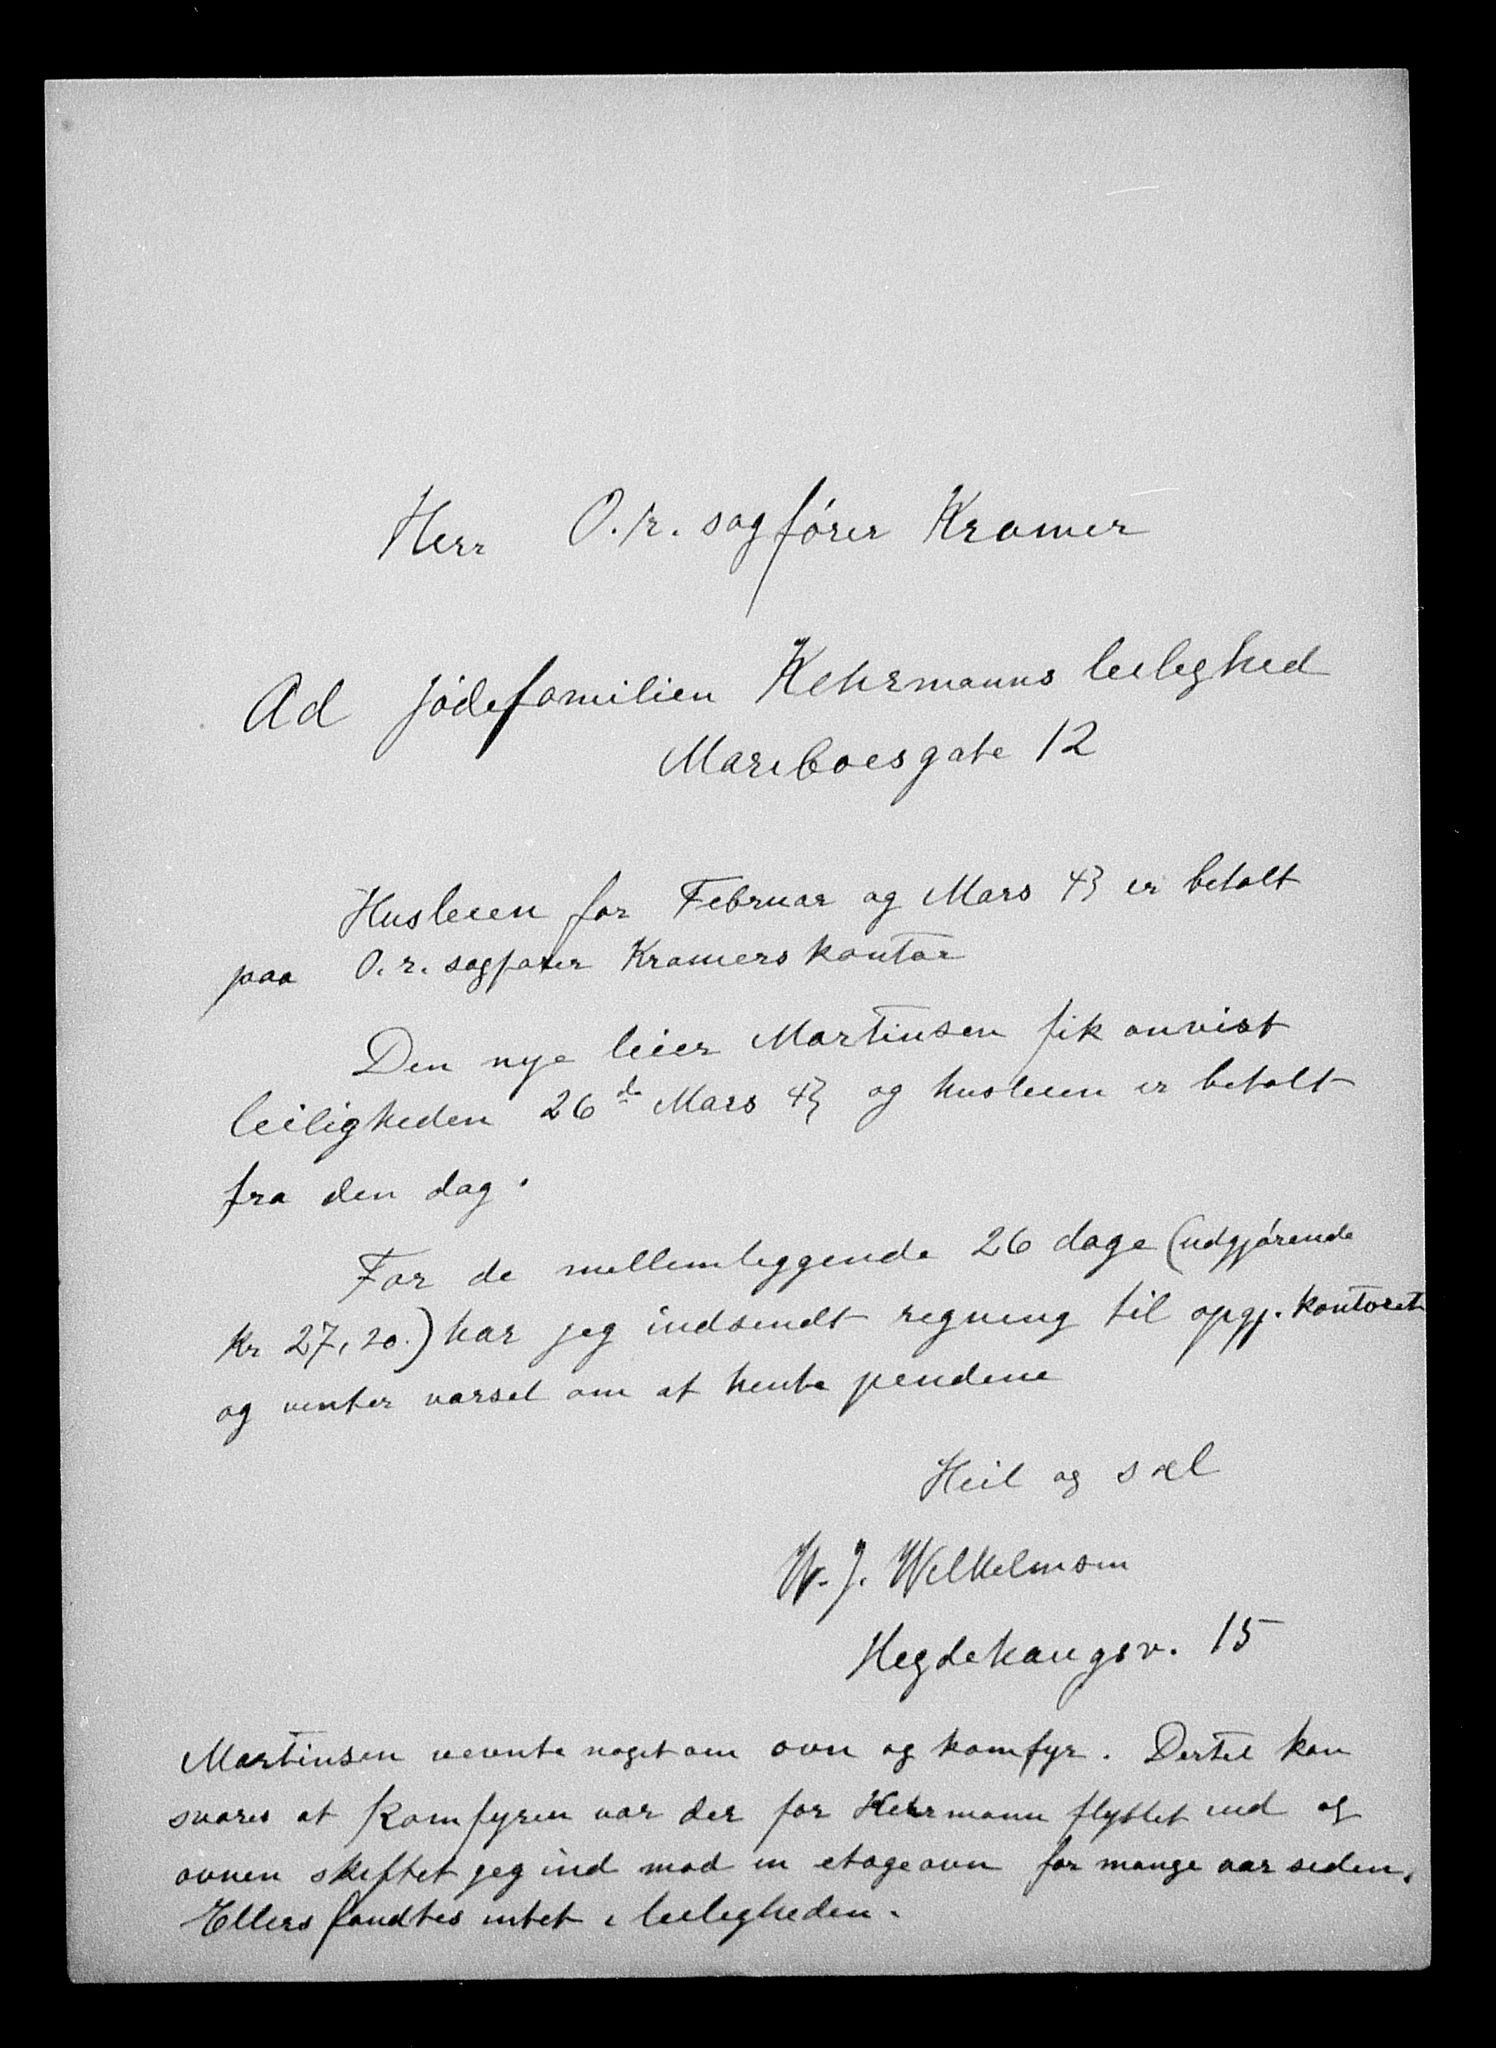 Herr O.r. sagfører Kramer
Ad jødefamilien Kehrmanns leilighed
Mariboesgate 12
Husleien for Februar og Mars 43 er betalt
paa O.r. sagfører Kramers kontor
Den nye leier Martinsen fik anvist
leiligheden 26de Mars 43 og husleien er betalt
fra den dag.
For de mellemliggende 26 dage (udgjørende
kr 27,20.) har jeg indsendt regning til opgj. kontoret
og venter varsel om at hente pendene
Heil og sæl
W. J. Wilhelmsen
Hegdehaugsv. 15
Martinsen nevnte noget om ovn og komfyr. Dertil kan
svares at komfyren var der før Kehrmann flyttet ind og
ovnen skiftet jeg ind mod en etageovn for mange aar siden.
Ellers fandtes intet i leiligheden.